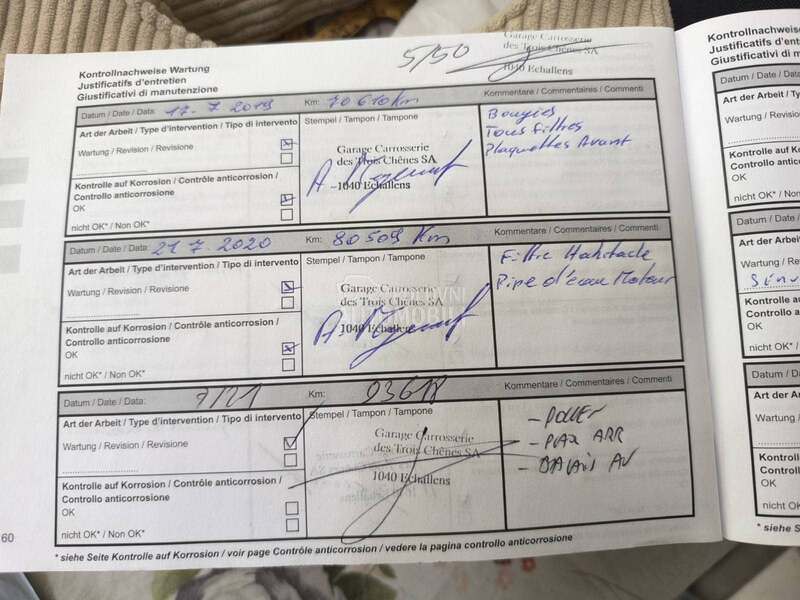 5/50
Garage Carrosserie
des Trois Chênes SA
1040 Echallens
Kontrollnachweise Wartung
Justificatifs d'entretien
Giustificativi di manutenzione
Datum / Date / Data: 17.7.2019 Km: 70610 Km Kommentare / Commentaires / Commenti
Art der Arbeit / Type d'intervention / Tipo di intervento Stempel / Tampon / Tampone
Bougies
Tous filtres
Plaquettes Avant
Wartung / Revision / Revisione
Garage Carrosserie
des Trois Chênes SA
1040 Echallens
Kontrolle auf Korrosion / Contrôle anticorrosion /
Controllo anticorrosione
OK
nicht OK* / Non OK*
Datum / Date / Data: 21.7.2020 Km: 80509 Km Kommentare / Commentaires / Commenti
Art der Arbeit / Type d'intervention / Tipo di intervento Stempel / Tampon / Tampone
Filtre Habitacle
Pipe d'eau Moteur
Wartung / Revision / Revisione
Garage Carrosserie
des Trois Chênes SA
1040 Echallens
Kontrolle auf Korrosion / Contrôle anticorrosion /
Controllo anticorrosione
OK
nicht OK* / Non OK*
Datum / Date / Data: 7/21 Km: 93618 Kommentare / Commentaires / Commenti
Art der Arbeit / Type d'intervention / Tipo di intervento Stempel / Tampon / Tampone
Wartung / Revision / Revisione
Garage Carrosserie
des Trois Chênes SA
1040 Echallens
Kontrolle auf Korrosion / Contrôle anticorrosion /
Controllo anticorrosione
OK
nicht OK* / Non OK*
60
* siehe Seite Kontrolle auf Korrosion / voir page Contrôle anticorrosion / vedere la pagina controllo anticorrosione
Kontrollnachweise
Justificatifs d'en
Giustificativi di m
Datum / Date / Data:
Art der Arbeit / Typ
Wartung / Revision
Kontrolle auf Korro
Controllo anticorro
OK
nicht OK* / Non OK*
Datum / Date / Da
Art der Arbeit / T
Wartung / Rev
Kontrolle auf K
Controllo antic
OK
nicht OK* / Non
Datum / Date / D
Art der Arbeit
Wartung / Re
Kontrolle auf
Controllo an
OK
nicht OK* / N
* siehe S